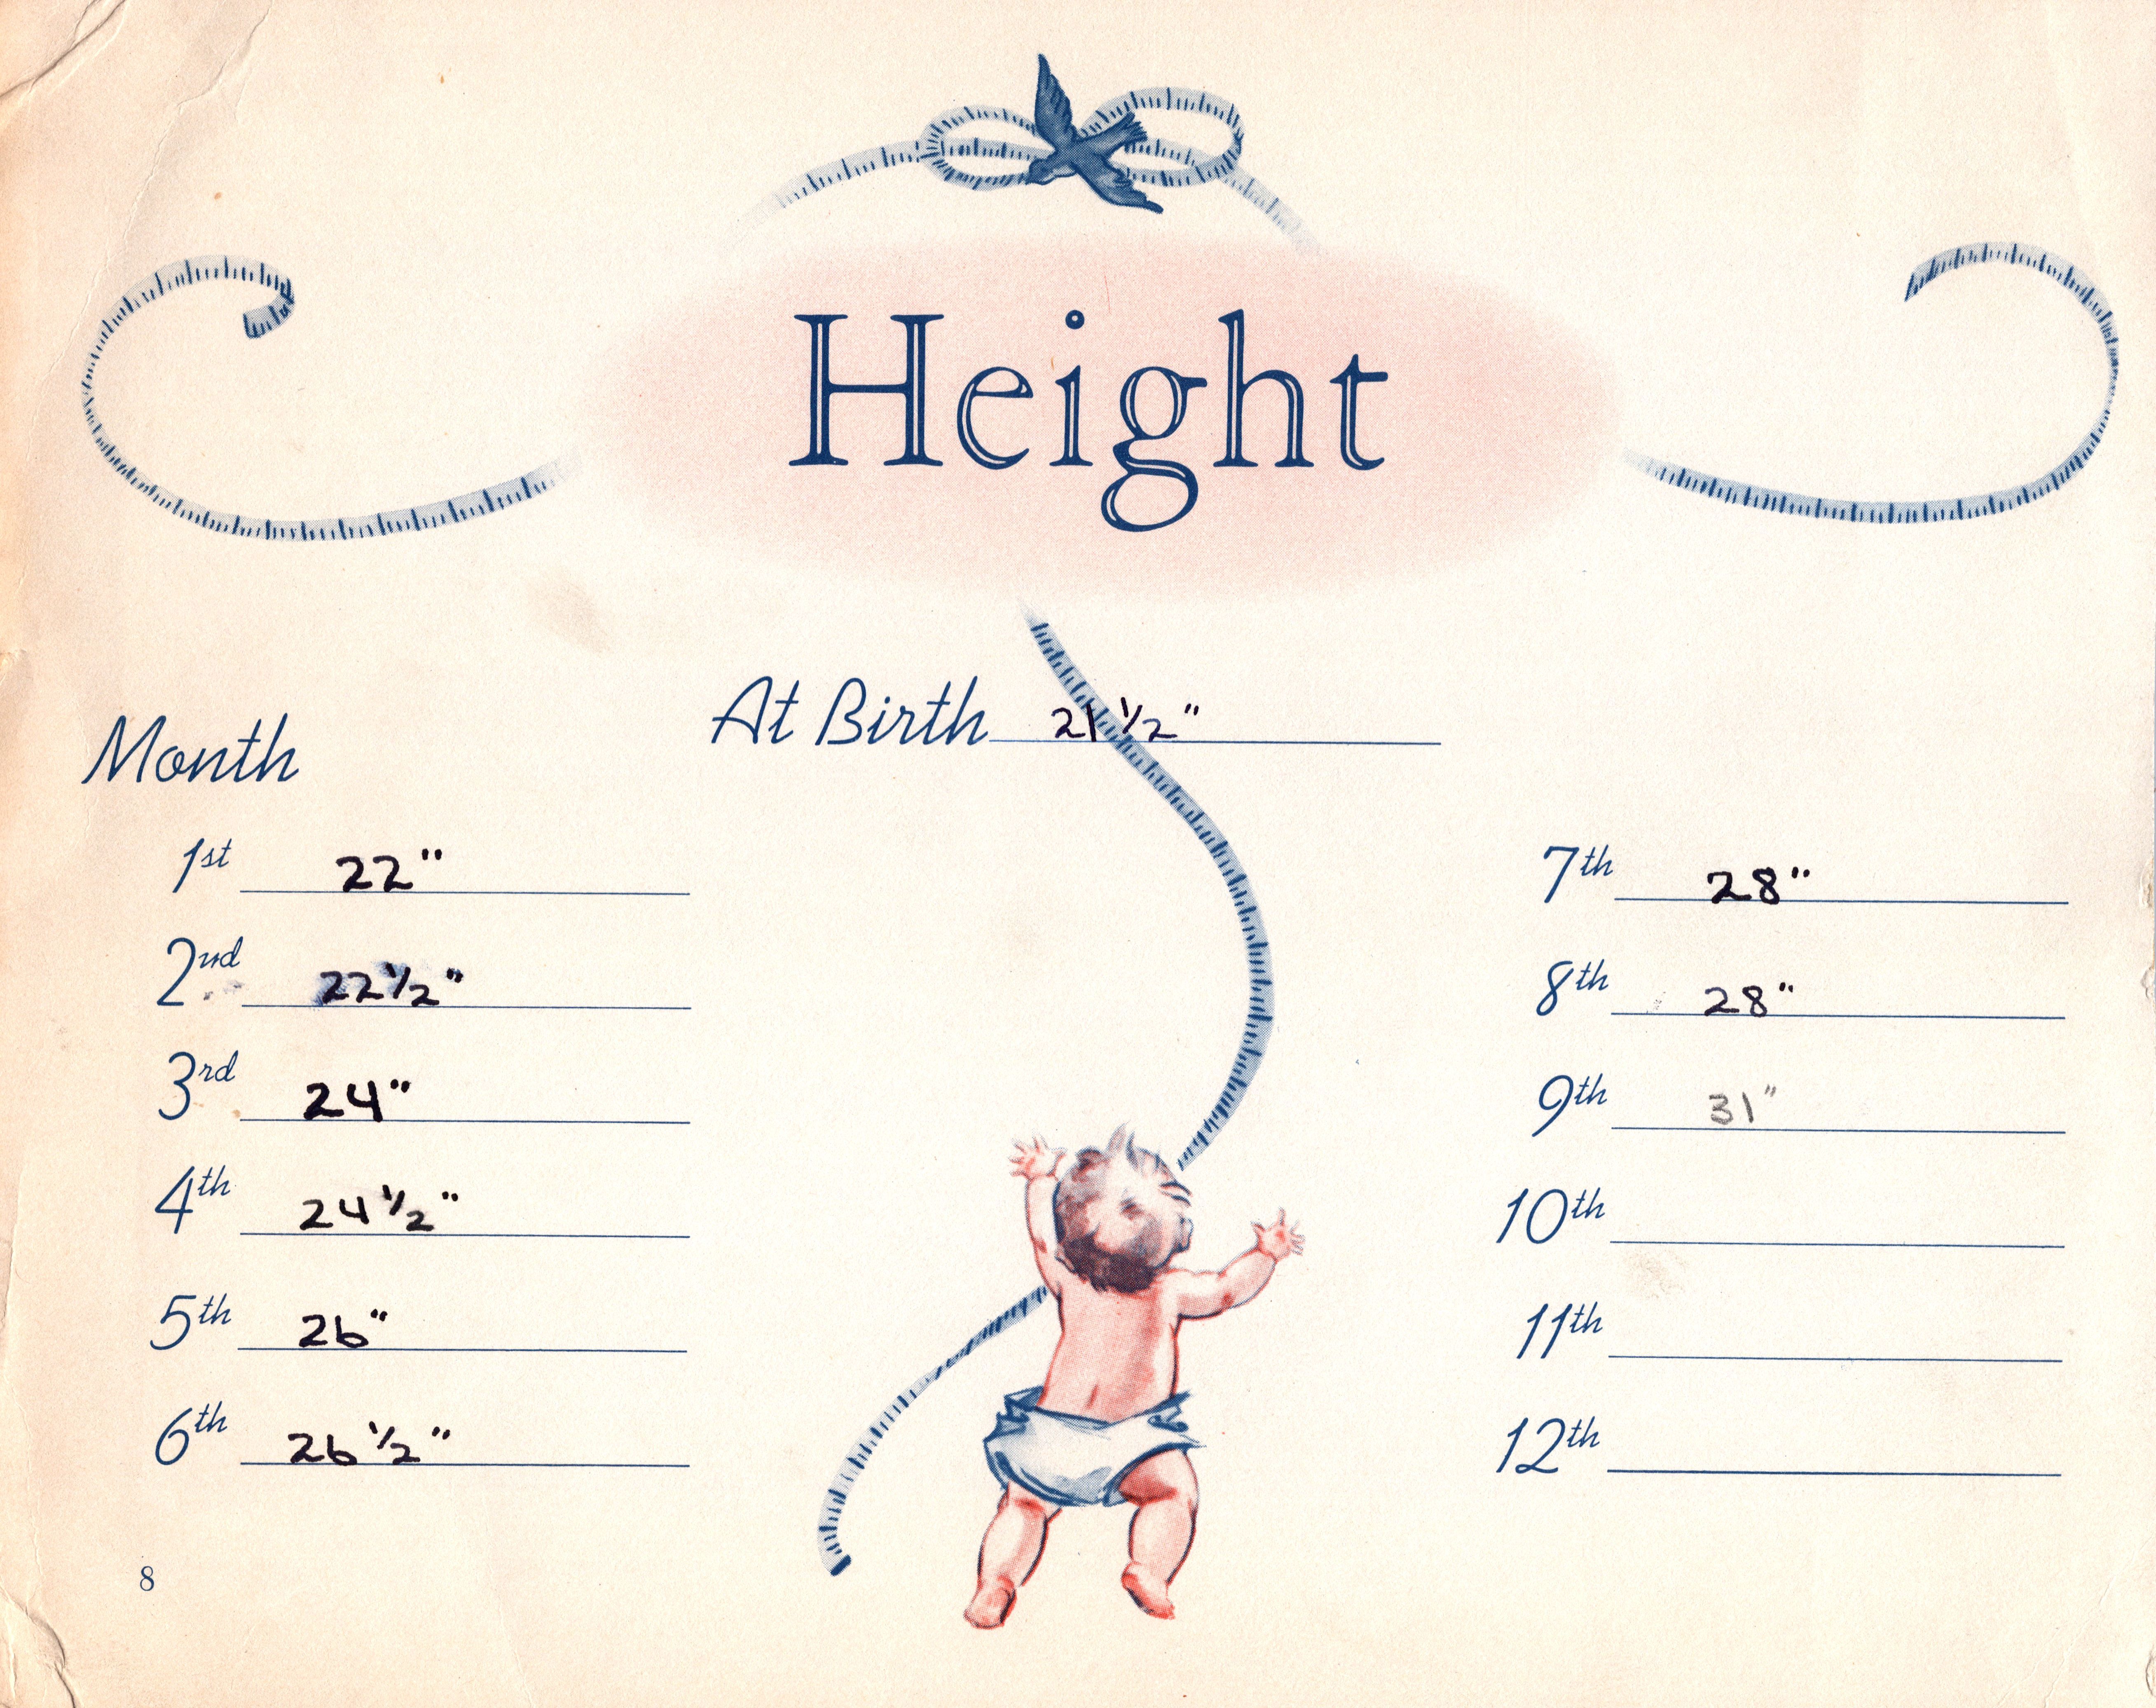 Height
At Birth 21 1/2"
Month
1st 22"
2nd 22 1/2"
3rd 24"
4th 24 1/2"
5th 26"
6th 26 1/2"
7th 28"
8th 28"
9th 31"
10th
11th
12th
8